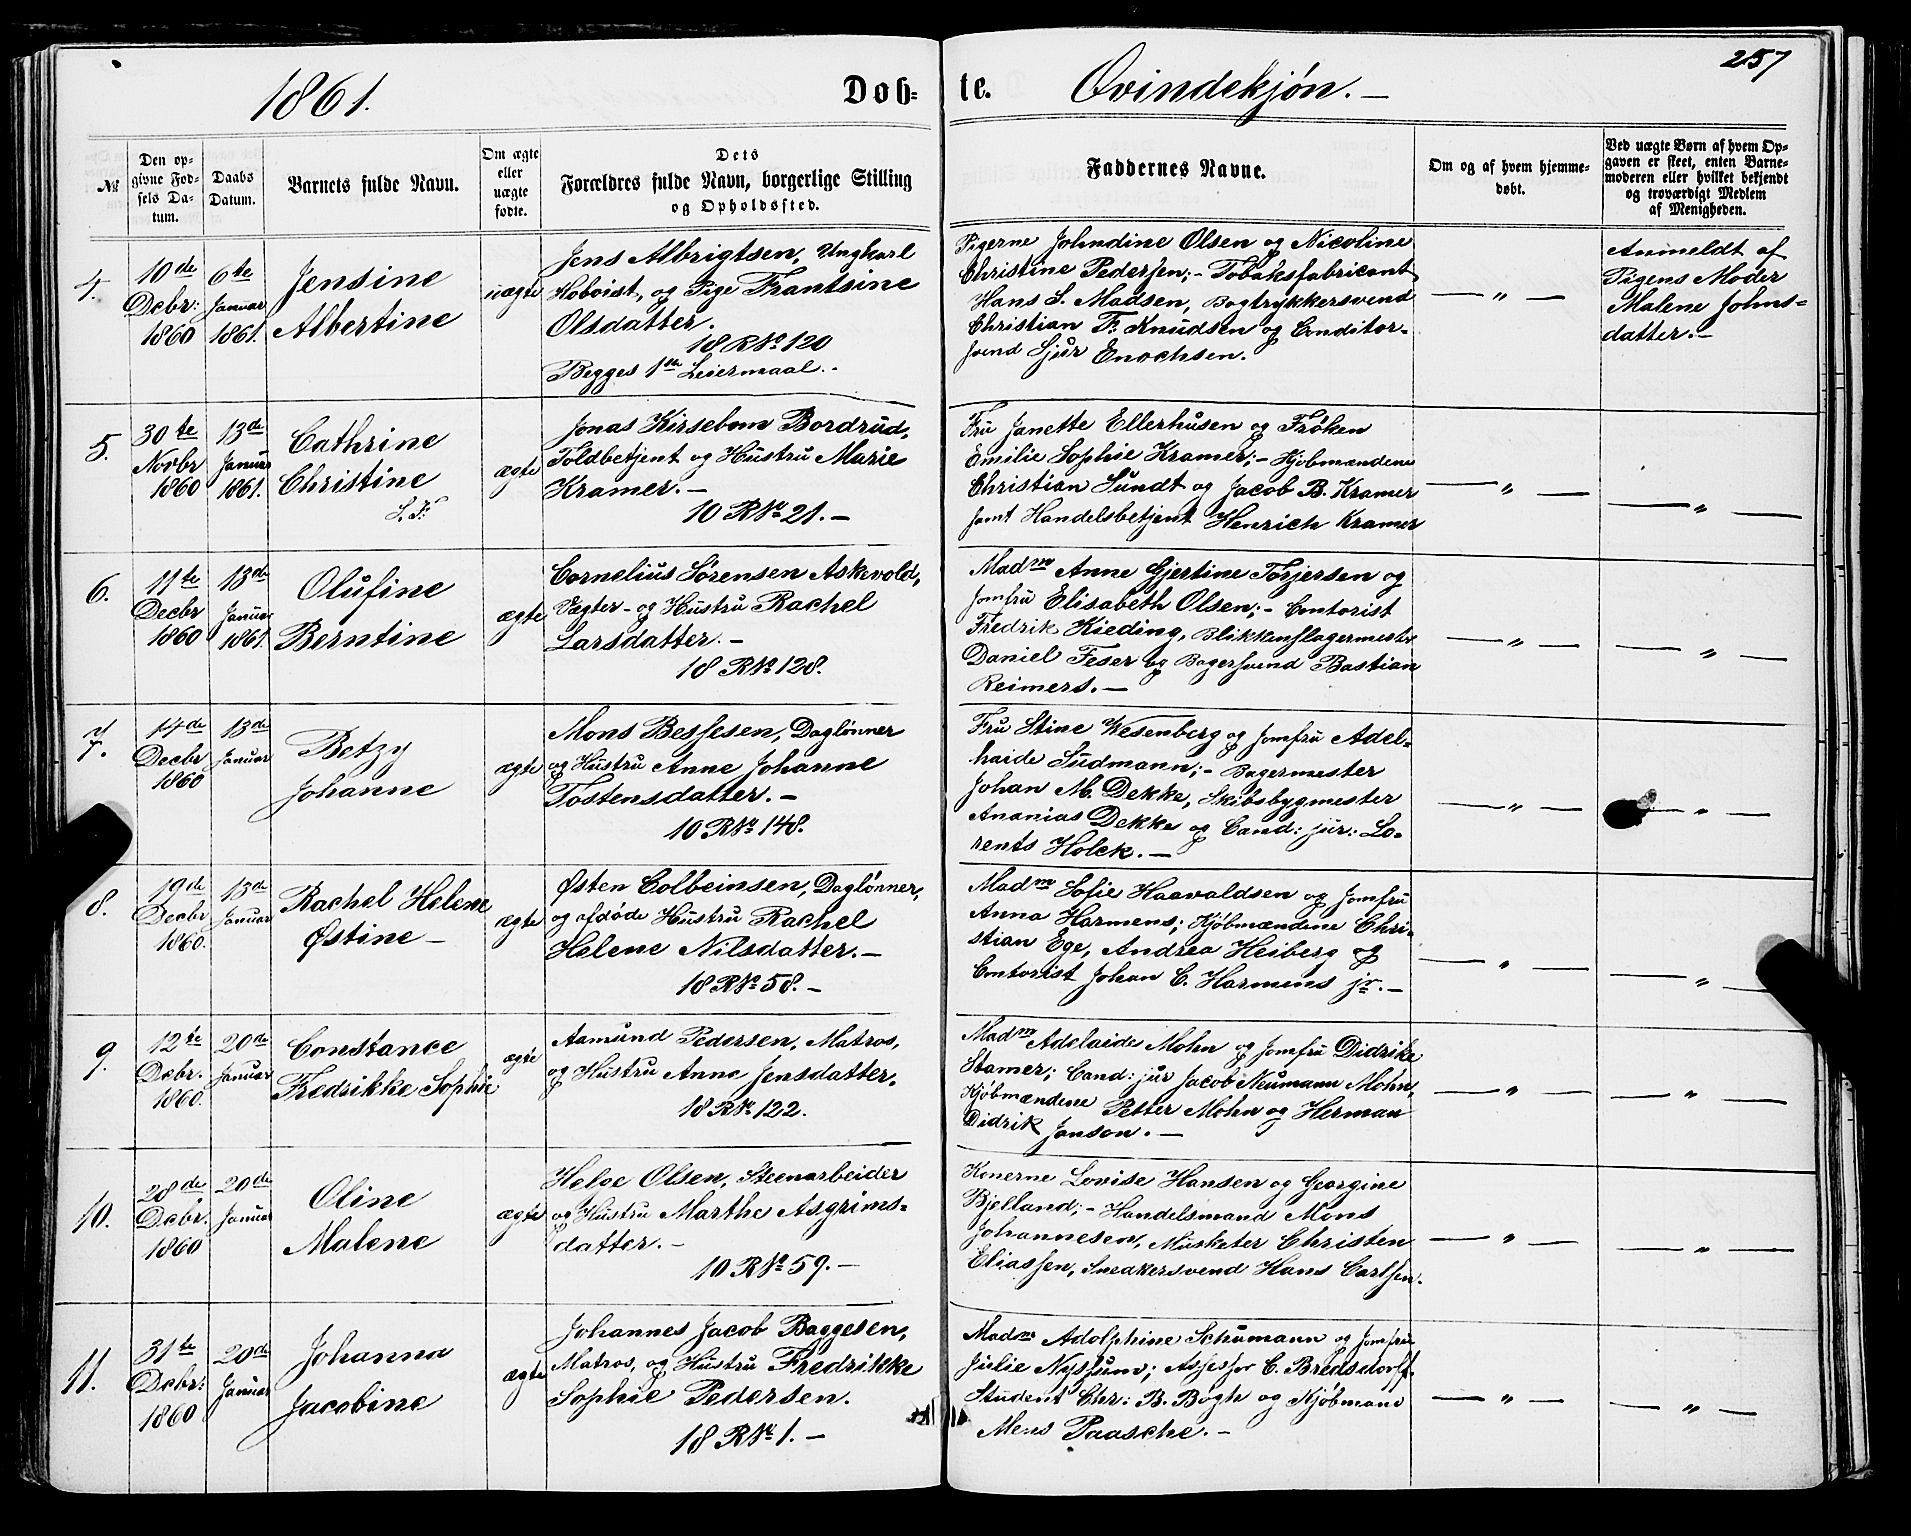 257
1861. Døb- te. Qvindekjøn. —
№
Den op-
givne Fød-
sels Da-
tum.
Daabs
Datum.
Barnets fulde Navn.
Om ægte
eller
uægte
fødte.
Dets
Forældres fulde Navn, borgerlige Stilling
og Opholdssted.
Faddernes Navne.
Om og af hvem hjemme-
døbt.
Ved uægte Børn af hvem Op-
gaven er skeet, enten Barne-
moderen eller hvilket bekjendt
og troværdigt Medlem
af Menigheden.
4.
10de
Decbr:
1860
6te
Januar
1861.
Jensine
Albertine
uægte
Jens Albrigtsen, Ungkarl
Hoboist, og Pige Frantsine
Olsdatter.
18 R № 120
Begges 1ste Leiermaal. -
Pigerne Johndine Olsen og Nicoline
Christine Pedersen; - Tobaksfabricant
Hans S. Madsen, Bogtrykkersvend
Christian F. Knudsen og Conditor-
svend Sjur Enochsen.
— " —
Anmeldt af
Pigens Moder
Malene Johns-
datter. -
5.
30te
Novbr
1860
13de
Januar
1861.
Cathrine
Christine
ægte
Jonas Kirsebom Bordrud,
Toldbetjent og Hustru Marie
Kramer. -
10 R № 21. -
Fru Janette Ellerhusen og Frøken
Emilie Sophie Kramer; - Kjøbmændene
Christian Sundt og Jacob B. Kramer
samt Handelsbetjent Henrich Kramer
— " —
— " —
6.
11te
Decbr
1860
13de
Januar
1861.
Olufine
Berntine
ægte
Cornelius Sørensen Askevold,
Vægter - og Hustru Rachel
Larsdatter. -
18 R № 128.
Madm Anne Gjertine Torjersen og
Jomfru Elisabeth Olsen; - Contorist
Fredrik Kieding, Blikkenslagermester
Daniel Feser og Bagersvend Bastian
Reimers. —
— " —
— " —
7.
14de
Decbr
1860
13de
Januar
Betzy
Johanne
ægte
Mons Bessesen, Daglønner
og Hustru Anne Johanne
Tostensdatter. -
10 R № 148.
Fru Stine Wesenberg og Jomfru Adel-
haide Sudmann; - Bagermester
Johan M. Dekke, Skibsbygmester
Ananias Dekke og Cand: jur: Lo-
rents Holck. —
— " —
— " —
8.
19de
Decbr
1860.
13de
Januar
Rachel Helene
Østine -
ægte
Østen Colbeinsen, Daglønner,
og afdøde Hustru Rachel
Helene Nilsdatter. -
18 R № 58. -
Madm Sofie Haavaldsen og Jomfru
Anna Harmens; Kjøbmændene Chri-
stian Ege, Andrea Heiberg og
Contorist Johan C. Harmens jr. -
— " —
— " —
9.
12te
Debr.
1860.
20de
Januar
Constance
Fredrikke Sophie
ægte
Aamund Pedersen, Matros,
og Hustru Anna Jensdatter.
18 R № 122.
Madm Adelaide Mohn og Jomfru Didrike
Stamer; Cand: jur Jacob Neumann Mohn,
Kjøbmændene Petter Mohn og Herman
Didrik Janson. —
— " —
— " —
10.
28de
Debr.
1860
20de
Januar
Oline
Malene
ægte
Helge Olsen, Steenarbeider
og Hustru Marthe Asgrims-
datter. -
10 R № 59. -
Konerne Lovise Hansen og Georgine
Bjelland; - Handelsmand Mons
Johannesen, Musketer Christen
Eliassen, Snedkersvend Hans Carlsen.
— " —
— " —
11.
31te
Debr:
1860
20de
Januar
Johanna
Jacobine
ægte
Johannes Jacob Baggesen,
Matros, og Hustru Fredrikke
Sophie Pedersen.
18 R № 1. -
Madm Adolphine Schumann og Jomfru
Julie Nyssum; Assessor C. Bredsdorff,
Student Chr: B. Bøgh og Kjøbmand
Mens Paasche. -
— " —
— " —